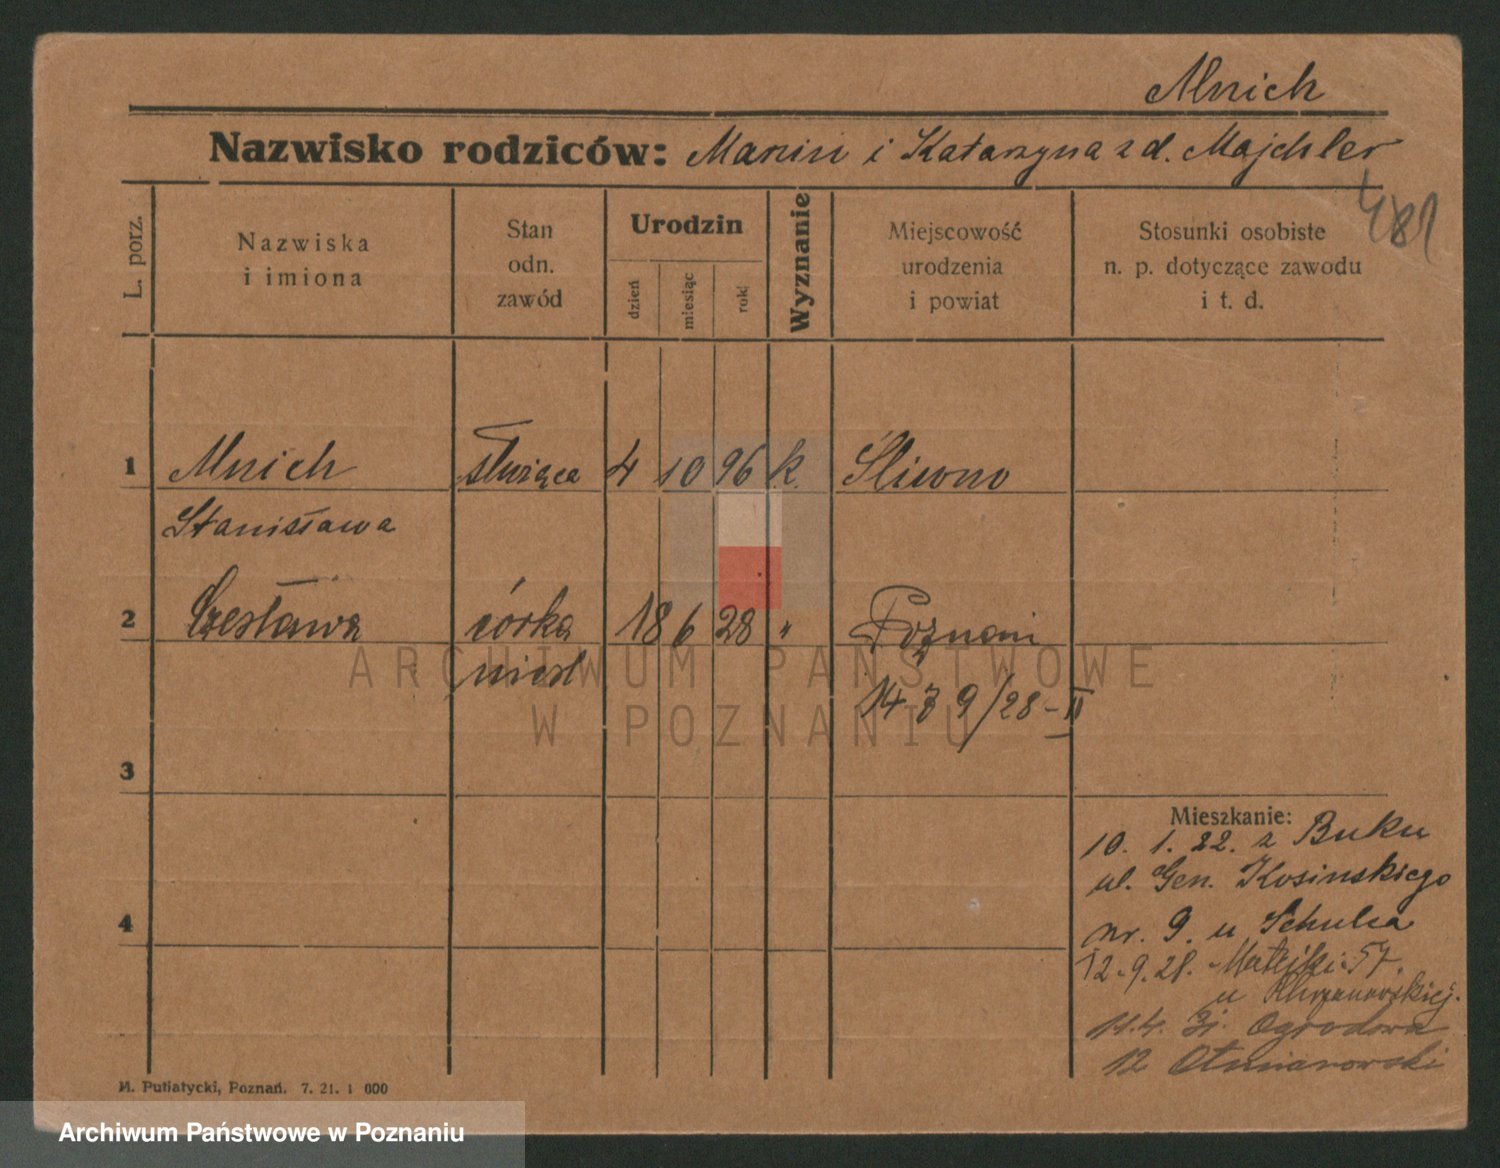 Mnich
Nazwisko rodziców: Marcin i Katarzyna z d. Majchler
481
L. porz.
Nazwiska
i imiona
Stan
odn.
zawód
Urodzin
dzień
miesiąc
rok
Wyznanie
Miejscowość
urodzenia
i powiat
Stosunki osobiste
n. p. dotyczące zawodu
i t. d.
1 Mnich służąca 4 10 96 k. Śliwno
Stanisława
2 Czesława córka 18 6 28 " Poznań
nieśl
ARCHIWUM PAŃSTWOWE
W POZNANIU
14 9/28-II
3
Mieszkanie:
10. 1. 22. z Buku
ul. Gen. Kosińskiego
4
nr. 9. u Schulza
12.9.28. Matejki 57.
u Chrzanowskiej.
11.4. 31. Ogrodowa
12
M. Putiatycki, Poznań. 7. 21. 1 000
Archiwum Państwowe w Poznaniu